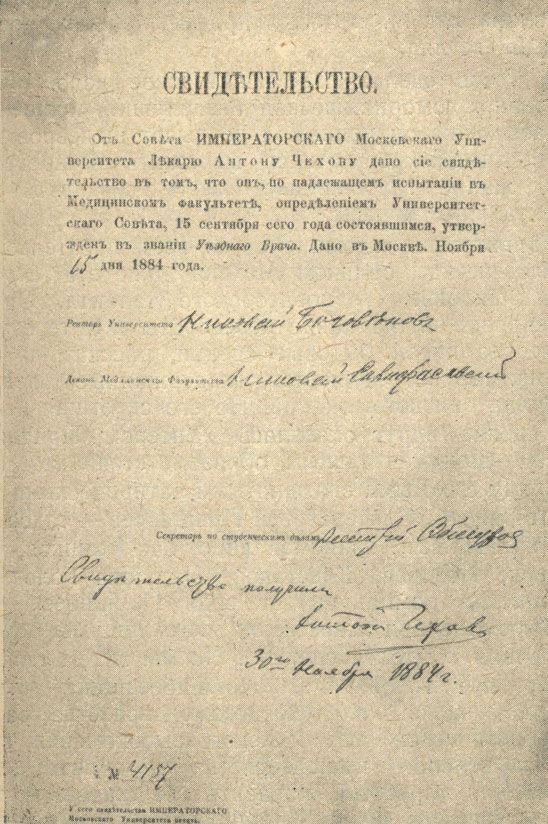 СВИДѢТЕЛЬСТВО.
Отъ Совѣта ИМПЕРАТОРСКАГО Московскаго Уни-
верситета Лѣкарю Антону Чехову дано сіе свидѣ-
тельство въ томъ, что онъ, по надлежащемъ испытаніи въ
Медицинскомъ факультетѣ, опредѣленіемъ Университет-
скаго Совѣта, 15 сентября сего года состоявшимся, утвер-
жденъ въ званіи Уѣзднаго Врача. Дано въ Москвѣ. Ноября
15 дня 1884 года.
Ректоръ Университета Николай Боголѣповъ
Деканъ Медицинскаго Факультета Николай
Секретарь по студенческимъ дѣламъ
Свидѣтельство получилъ
Антонъ Чеховъ
30го Ноября 1884 г.
№ 4157
У сего свидѣтельства ИМПЕРАТОРСКАГО
Московскаго Университета печать.